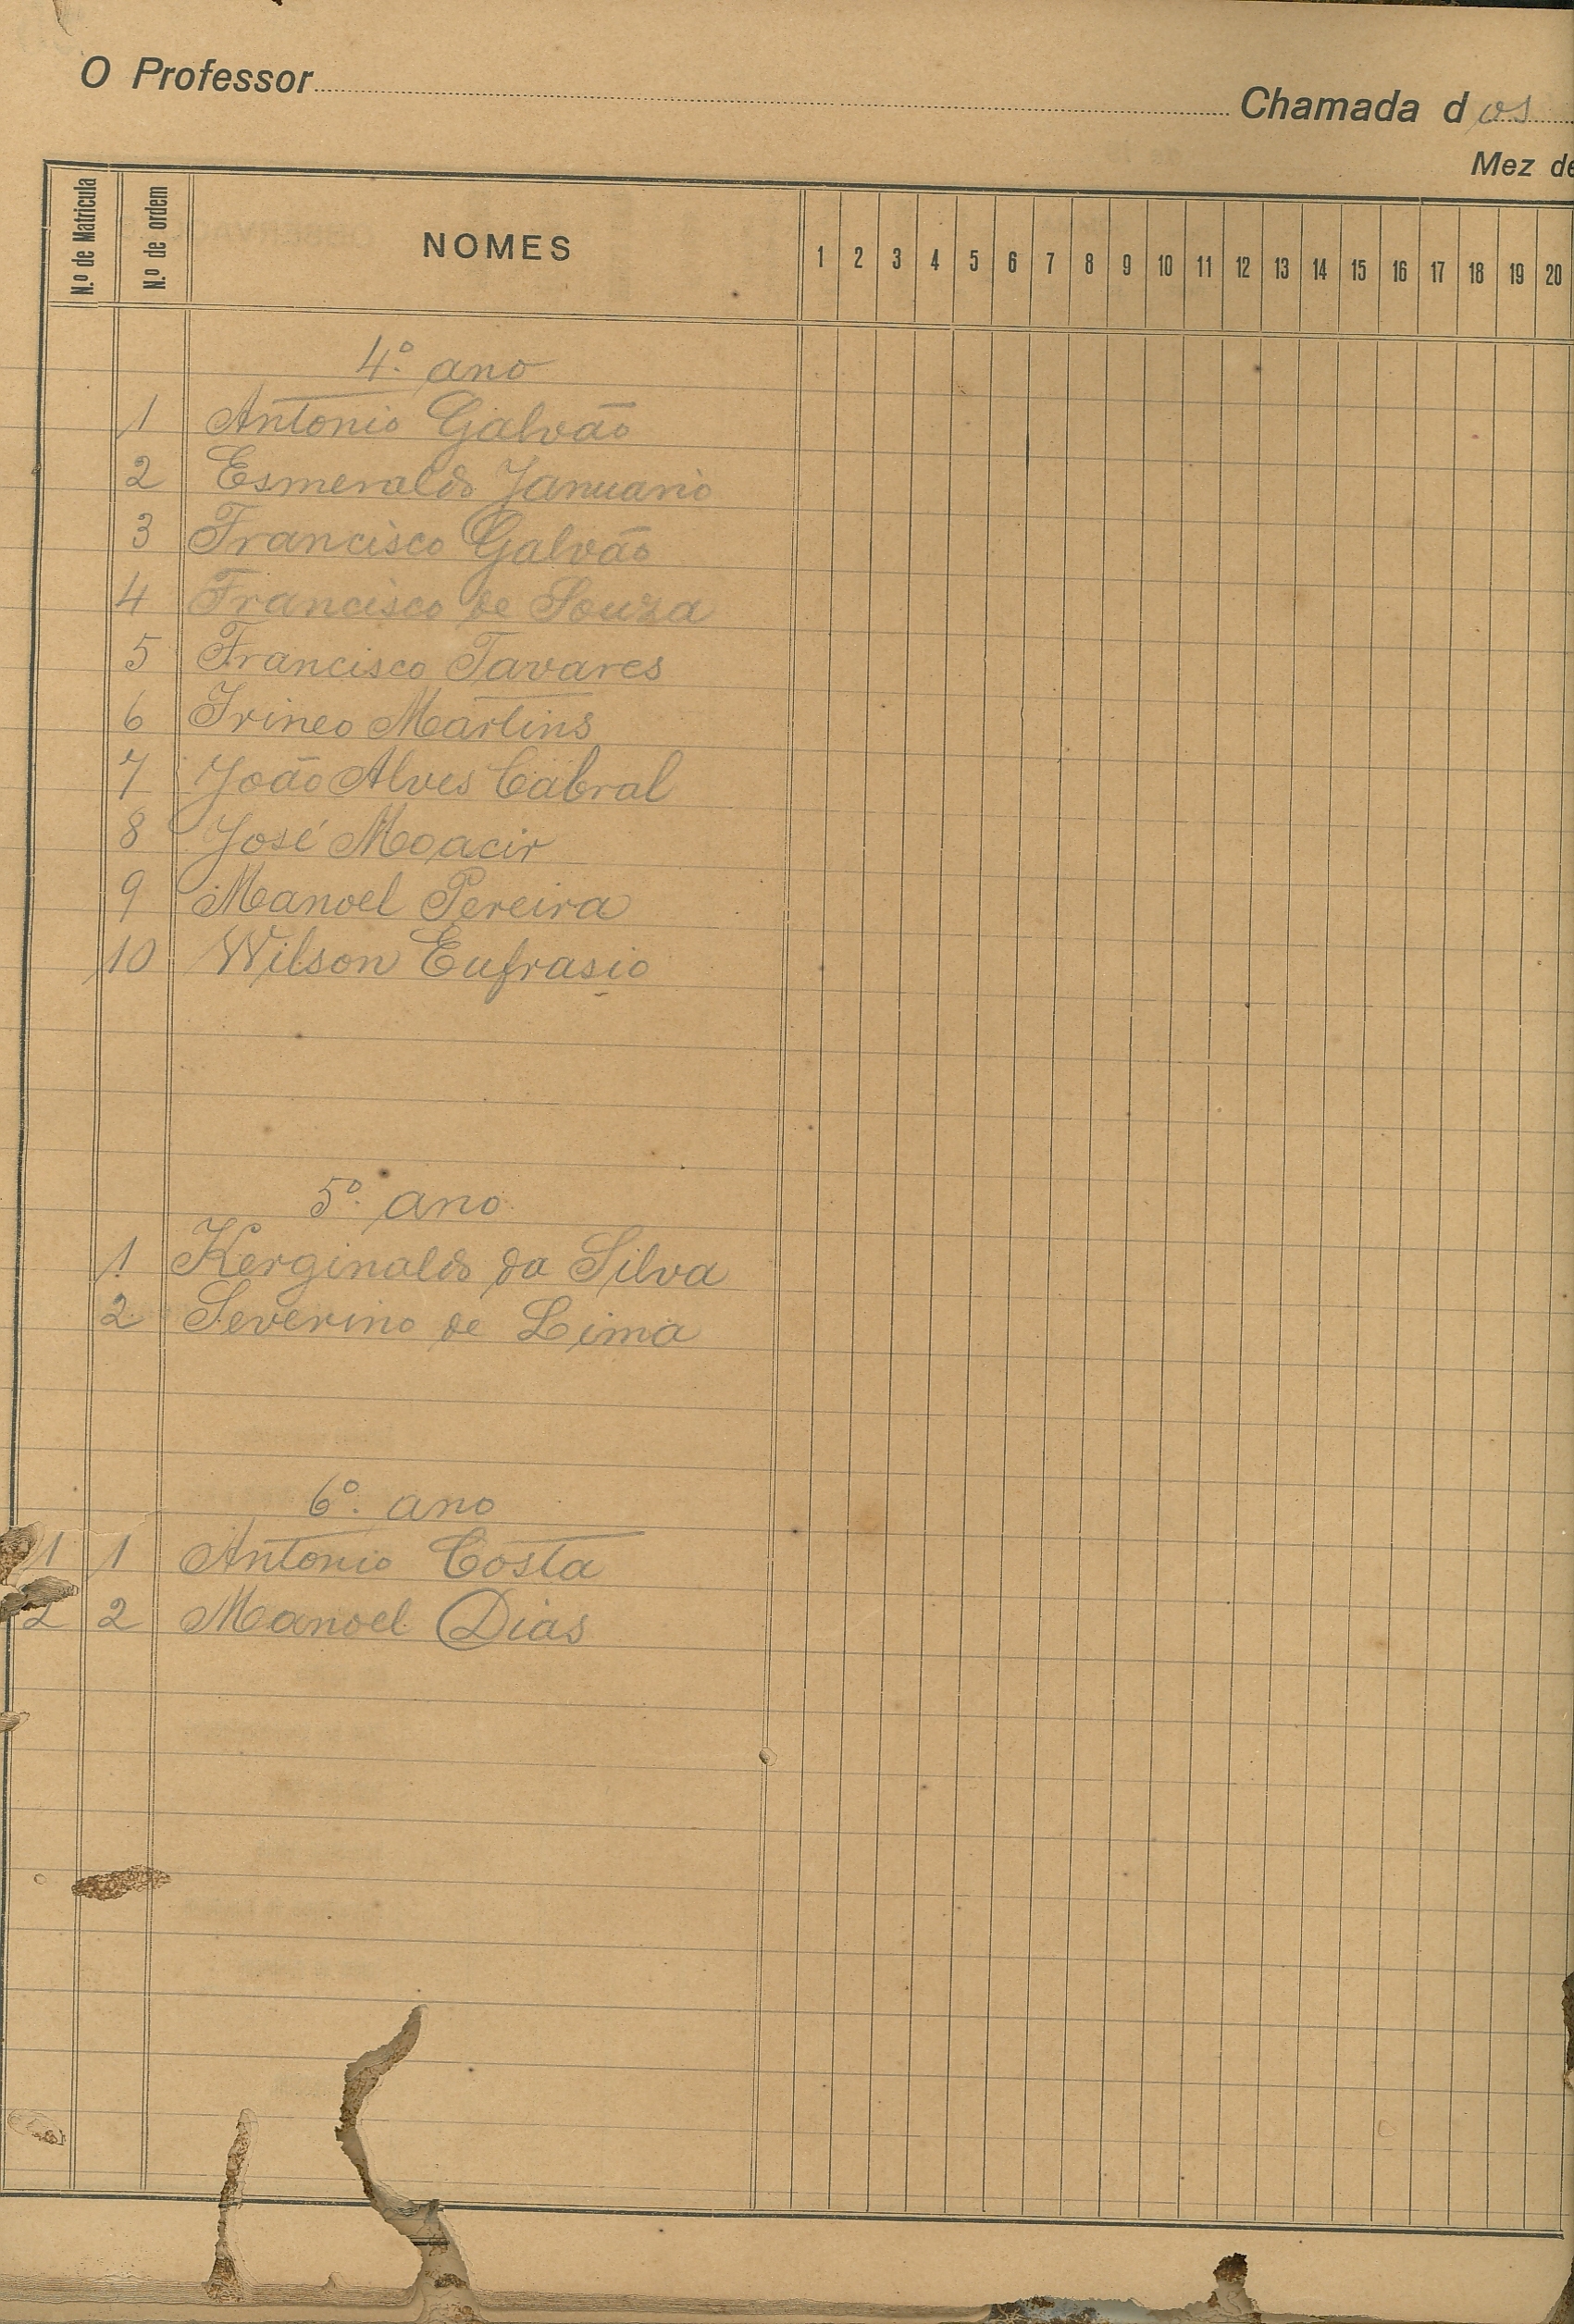 O Professor
Chamada dos
Mez de
N.º de Matricula N.º de ordem NOMES 1 2 3 4 5 6 7 8 9 10 11 12 13 14 15 16 17 18 19 20
4º. ano
1 Antonio Galvão
2 Esmeraldo Januario
3 Francisco Galvão
4 Francisco de Souza
5 Francisco Tavares
6 Irineo Martins
7 João Alves Cabral
8 José Moacir
9 Manoel Pereira
10 Wilson Eufrasio
5º. ano
1 Kerginaldo da Silva
2 Severino de Lima
6º. ano
1 1 Antonio Costa
2 2 Manoel Dias